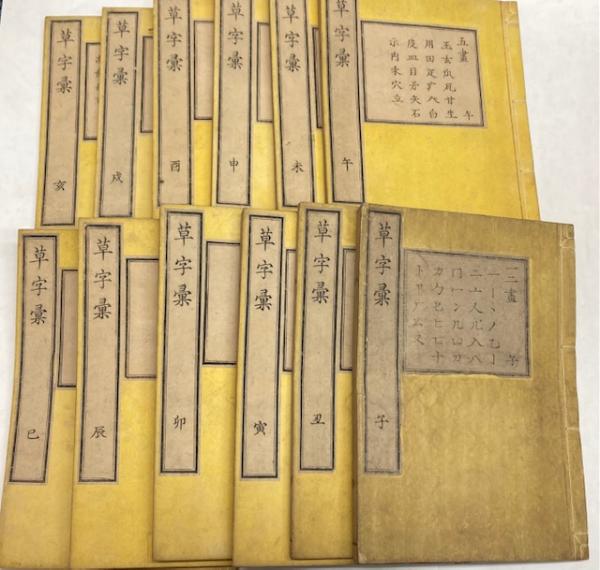 草字彙 午
五畫 午
玉玄瓜瓦甘生
用田疋疒癶白
皮皿目矛矢石
示禸禾穴立
草字彙 未
草字彙 申
草字彙 酉
草字彙 戌
草字彙 亥
草字彙 子
畫
一丨丶丿乙亅
二亠人儿入八
冂冖冫几凵刀
力勹匕匚匸十
卜卩厂厶又
草字彙 丑
草字彙 寅
草字彙 卯
草字彙 辰
草字彙 巳